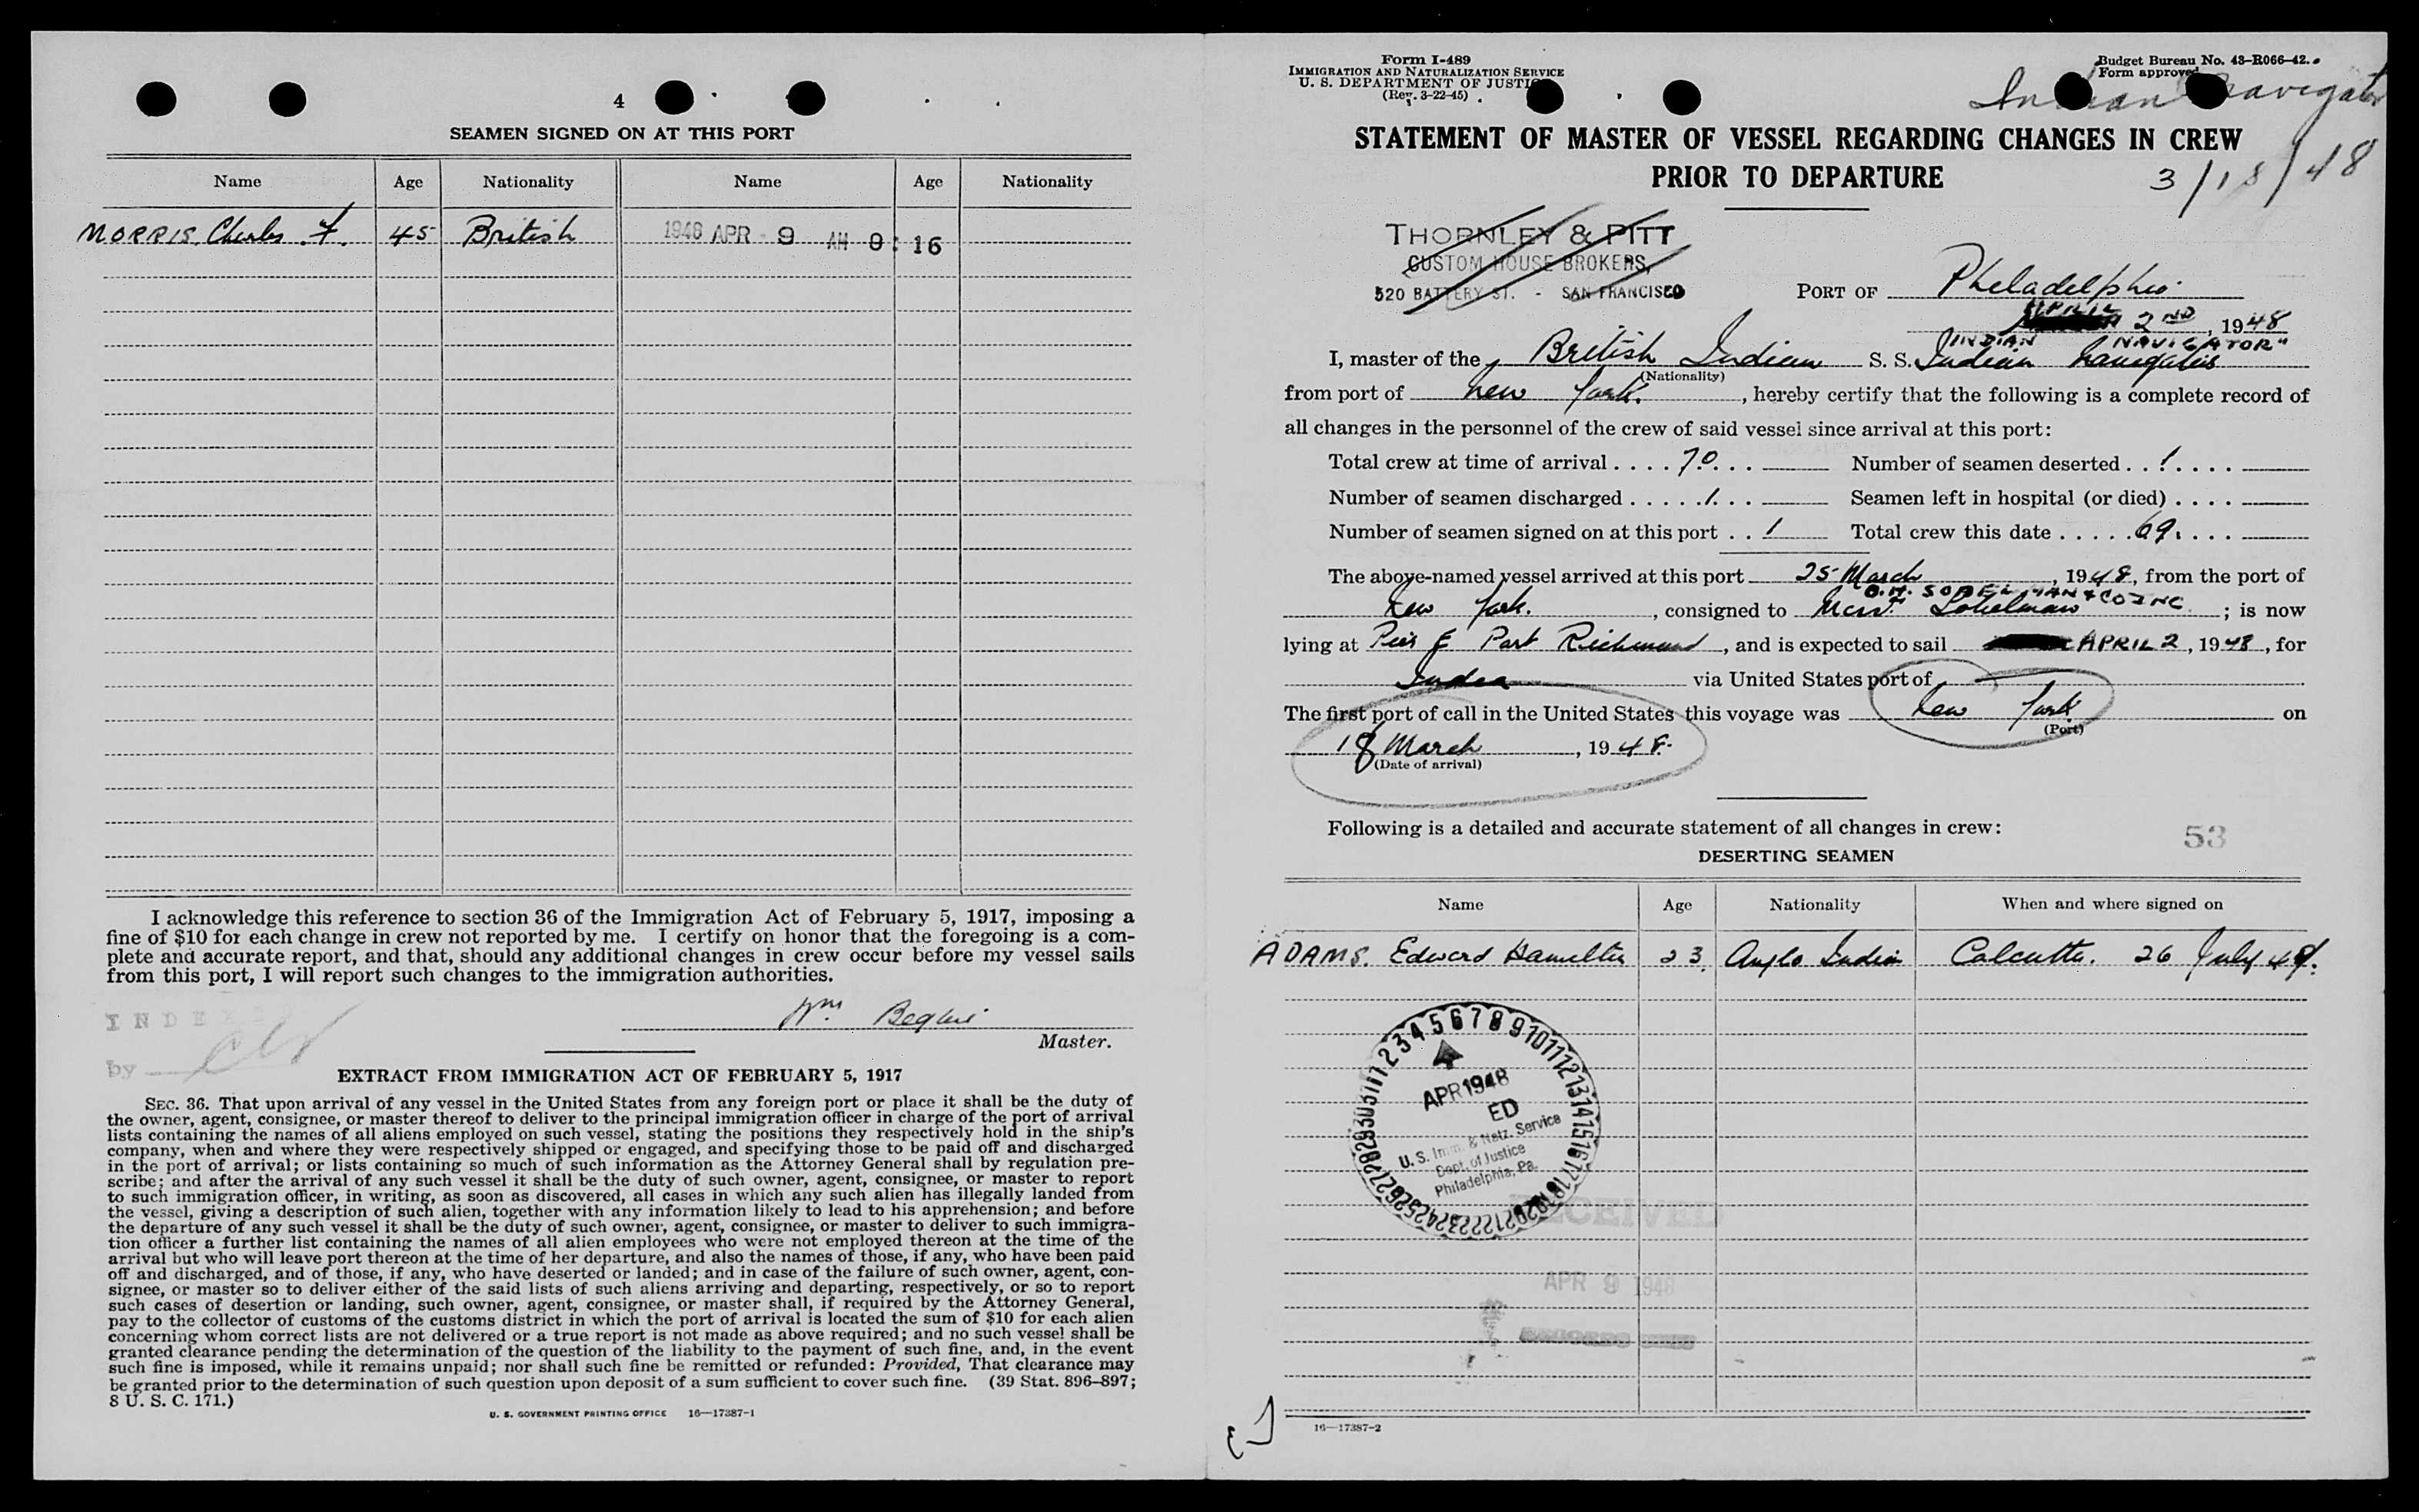 4
SEAMEN SIGNED ON AT THIS PORT
Name Age Nationality Name Age Nationality
MORRIS. Charles F. 45 British 1948 APR 9 AM 9:16
I acknowledge this reference to section 36 of the Immigration Act of February 5, 1917, imposing a
fine of $10 for each change in crew not reported by me. I certify on honor that the foregoing is a com-
plete and accurate report, and that, should any additional changes in crew occur before my vessel sails
from this port, I will report such changes to the immigration authorities.
Wm
Master.
by
EXTRACT FROM IMMIGRATION ACT OF FEBRUARY 5, 1917
SEC. 36. That upon arrival of any vessel in the United States from any foreign port or place it shall be the duty of
the owner, agent, consignee, or master thereof to deliver to the principal immigration officer in charge of the port of arrival
lists containing the names of all aliens employed on such vessel, stating the positions they respectively hold in the ship's
company, when and where they were respectively shipped or engaged, and specifying those to be paid off and discharged
in the port of arrival; or lists containing so much of such information as the Attorney General shall by regulation pre-
scribe; and after the arrival of any such vessel it shall be the duty of such owner, agent, consignee, or master to report
to such immigration officer, in writing, as soon as discovered, all cases in which any such alien has illegally landed from
the vessel, giving a description of such alien, together with any information likely to lead to his apprehension; and before
the departure of any such vessel it shall be the duty of such owner, agent, consignee, or master to deliver to such immigra-
tion officer a further list containing the names of all alien employees who were not employed thereon at the time of the
arrival but who will leave port thereon at the time of her departure, and also the names of those, if any, who have been paid
off and discharged, and of those, if any, who have deserted or landed; and in case of the failure of such owner, agent, con-
signee, or master so to deliver either of the said lists of such aliens arriving and departing, respectively, or so to report
such cases of desertion or landing, such owner, agent, consignee, or master shall, if required by the Attorney General,
pay to the collector of customs of the customs district in which the port of arrival is located the sum of $10 for each alien
concerning whom correct lists are not delivered or a true report is not made as above required; and no such vessel shall be
granted clearance pending the determination of the question of the liability to the payment of such fine, and, in the event
such fine is imposed, while it remains unpaid; nor shall such fine be remitted or refunded: Provided, That clearance may
be granted prior to the determination of such question upon deposit of a sum sufficient to cover such fine. (39 Stat. 896-897;
8 U. S. C. 171.)
U. S. GOVERNMENT PRINTING OFFICE 16—17387-1
Form I-489
IMMIGRATION AND NATURALIZATION SERVICE
U. S. DEPARTMENT OF JUSTICE
(Rev. 3-22-45)
Budget Bureau No. 43-R066-42.
Form approved
Indian Navigator
STATEMENT OF MASTER OF VESSEL REGARDING CHANGES IN CREW
PRIOR TO DEPARTURE
3/18/48
THORNLEY & PITT
CUSTOM HOUSE BROKERS,
520 BATTERY ST. - SAN FRANCISCO
PORT OF Philadelphia
APRIL
2ND, 1948
"INDIAN NAVIGATOR"
I, master of the British Indian S. S. Indian Navigator
(Nationality)
from port of New York., hereby certify that the following is a complete record of
all changes in the personnel of the crew of said vessel since arrival at this port:
Total crew at time of arrival .... 70 ... Number of seamen deserted .. 1 ....
Number of seamen discharged ..... 1 ... Seamen left in hospital (or died) ....
Number of seamen signed on at this port .. 1 Total crew this date ..... 69 ....
The above-named vessel arrived at this port 25 March, 1948, from the port of
B.H. SOBELMAN & CO INC
New York., consigned to Messrs Sobelman; is now
lying at Pier E Port Richmond, and is expected to sail APRIL 2, 1948, for
India via United States port of
The first port of call in the United States this voyage was New York on
(Port)
18 March, 1948.
(Date of arrival)
Following is a detailed and accurate statement of all changes in crew:
53
DESERTING SEAMEN
Name Age Nationality When and where signed on
ADAMS. Edward Hamilton 23 Anglo Indian Calcutta. 26 July 47.
1 2 3 4 5 6 7 8 9 10 11 12 13 14 15 16 17 18 19 20 21 22 23 24 25 26 27 28 29 30 31
APR 1948
ED
U. S. Imm. & Natz. Service
Dept. of Justice
Philadelphia, Pa.
RECEIVED
APR 9 1948
16—17387-2